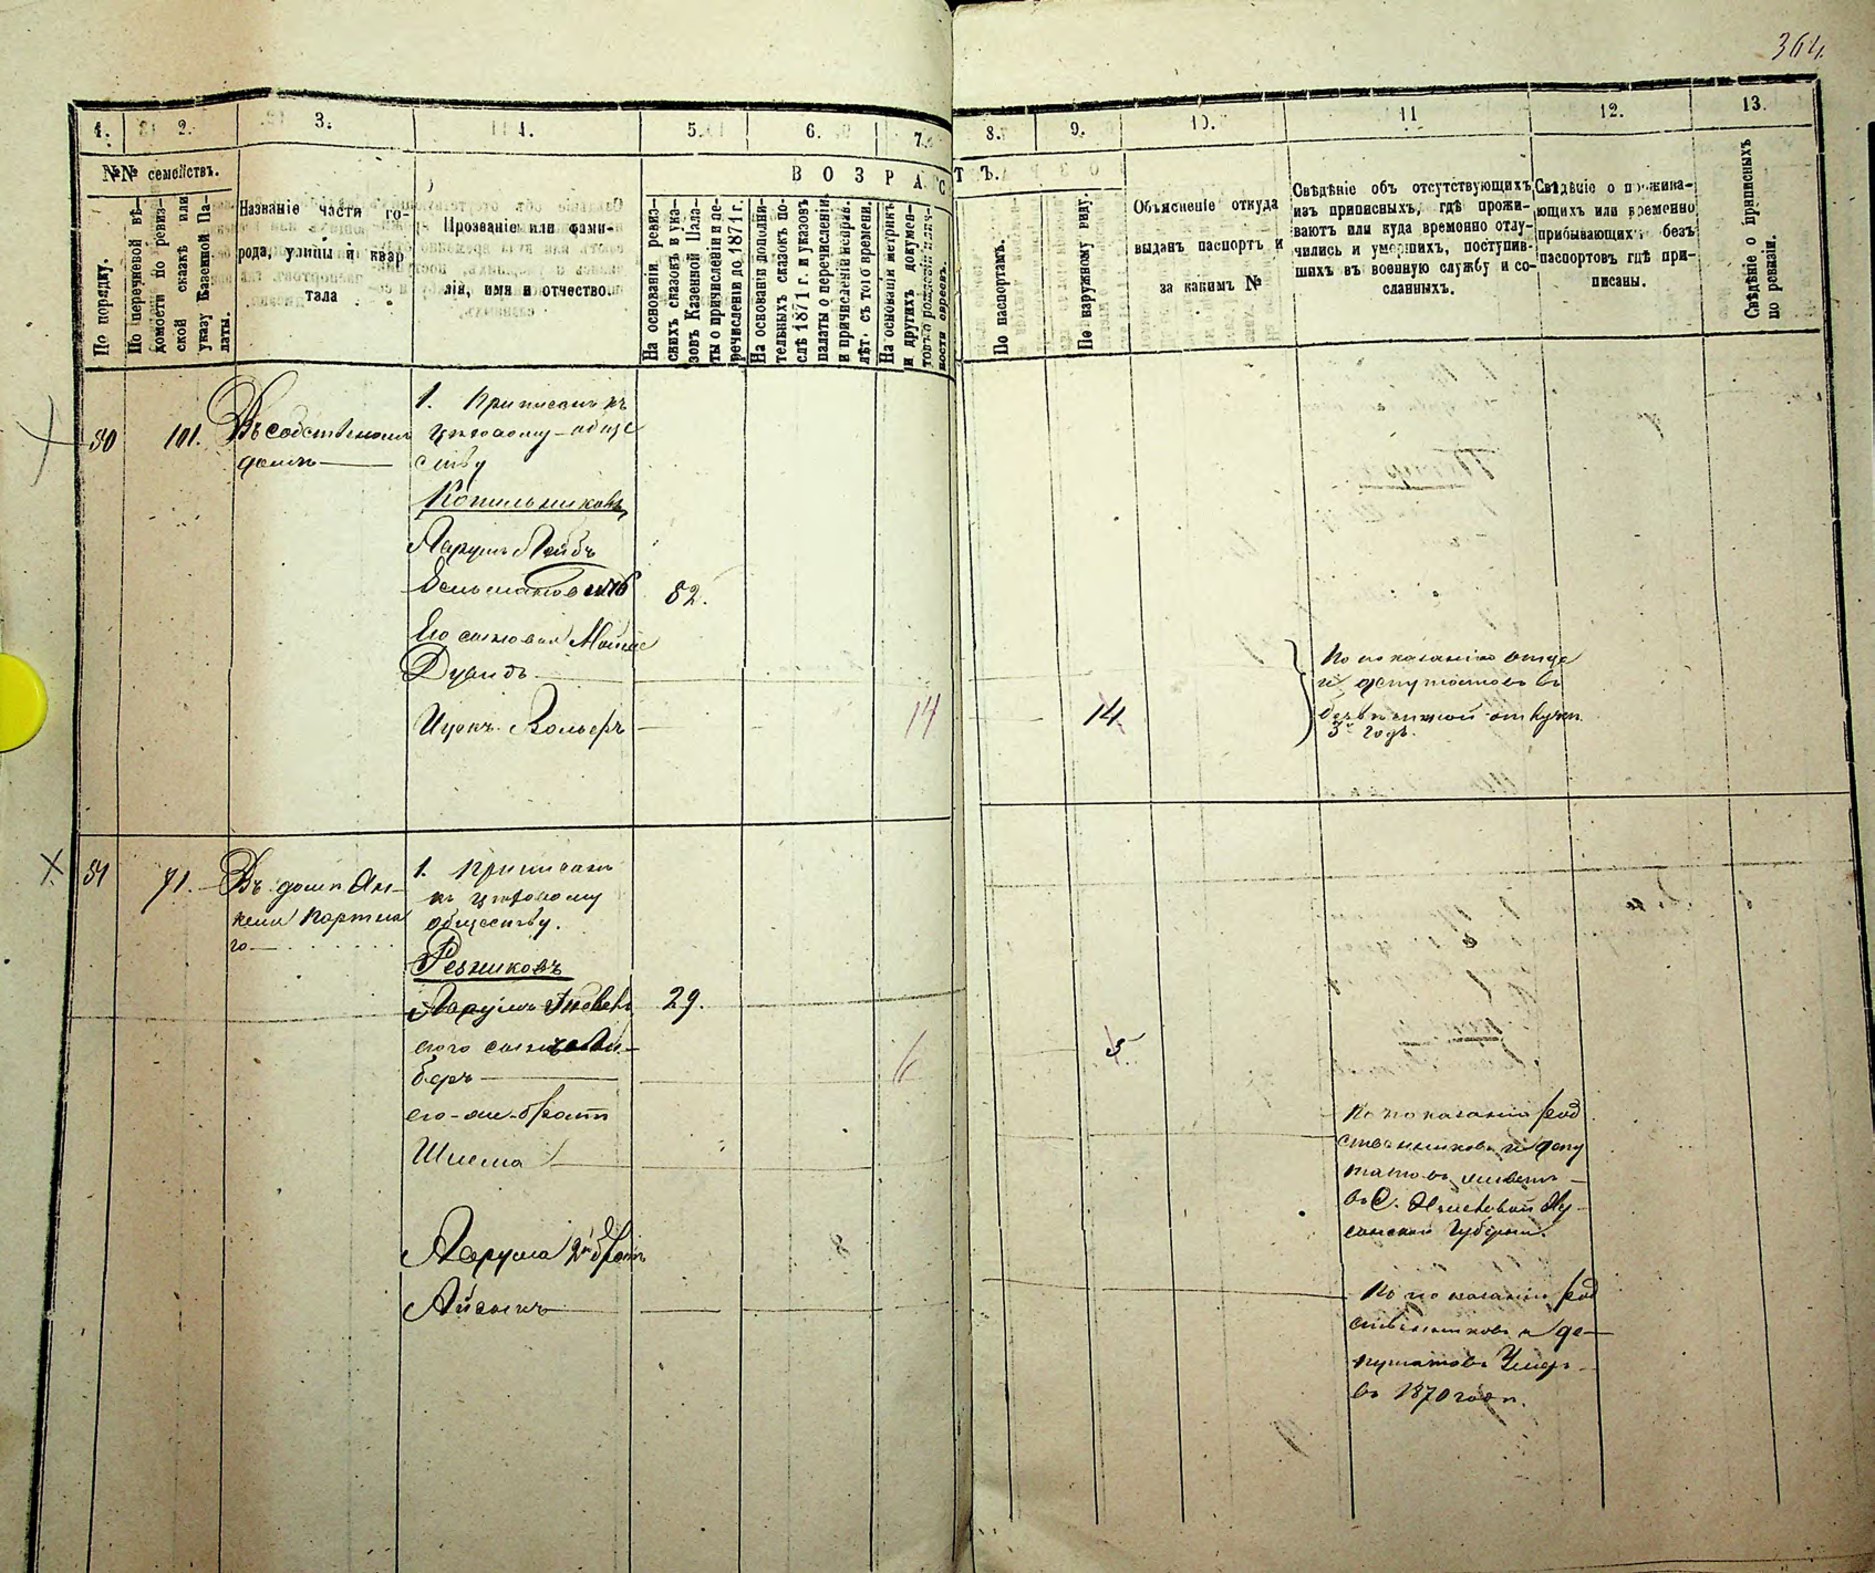 364.
1.
2.
3.
4.
5.
6.
7.
8.
9.
10.
11
12.
13.
№№ семействъ.
ВОЗРАСТЪ.
По порядку.
По перечневой вѣ-
домости по ревиз-
ской сказкѣ или
указу Казенной Па-
латы.
Названіе части го-
рода, улицы и квар
тала
Прозваніе или фами-
лія, имя и отчество.
На основаніи ревиз-
скихъ сказокъ и ука-
зовъ Казенной Пала-
ты о причисленіи и пе-
речисленіи до 1871 г.
На основаніи дополни-
тельныхъ сказокъ по-
слѣ 1871 г. и указовъ
палаты о перечисленіи
и причисленіи исправ.
лѣт. съ того времени.
На основаніи метрикъ
и другихъ докумен-
товъ о рожденіи
ности евреевъ.
По паспортамъ.
По наружному виду.
Объясненіе откуда
выданъ паспортъ и
за какимъ №
Свѣдѣніе объ отсутствующихъ
изъ приписныхъ, гдѣ прожи-
ваютъ или куда временно отлу-
чились и умершихъ, поступив-
шихъ въ военную службу и со-
сланныхъ.
Свѣдѣніе о прожива-
ющихъ или временно
прибывающихъ безъ
паспортовъ гдѣ при-
писаны.
Свѣдѣніе о приписныхъ
по ревизіи.
80
101.
Въ собственомъ
домѣ
1. Приписанъ къ
цеховому обще
ству
Котельниковъ
Лейбъ
52.
Его сыновья
Дувидъ
Ицокъ Вольфъ
14
14.
По показанію отца
и депутатовъ въ
3й годъ.
71.
Въ домѣ Ян-
келя
го
1. Приписанъ
къ цеховому
обществу.
Резниковъ
29.
беръ
6
5
его-же-братъ
Шлема
По показанію род
ственниковъ и депу
татовъ живетъ
въ С.
Губерніи.
2й братъ
Айзикъ
По показанію род
ственниковъ и де-
путатовъ Умеръ
въ 1870 годѣ.